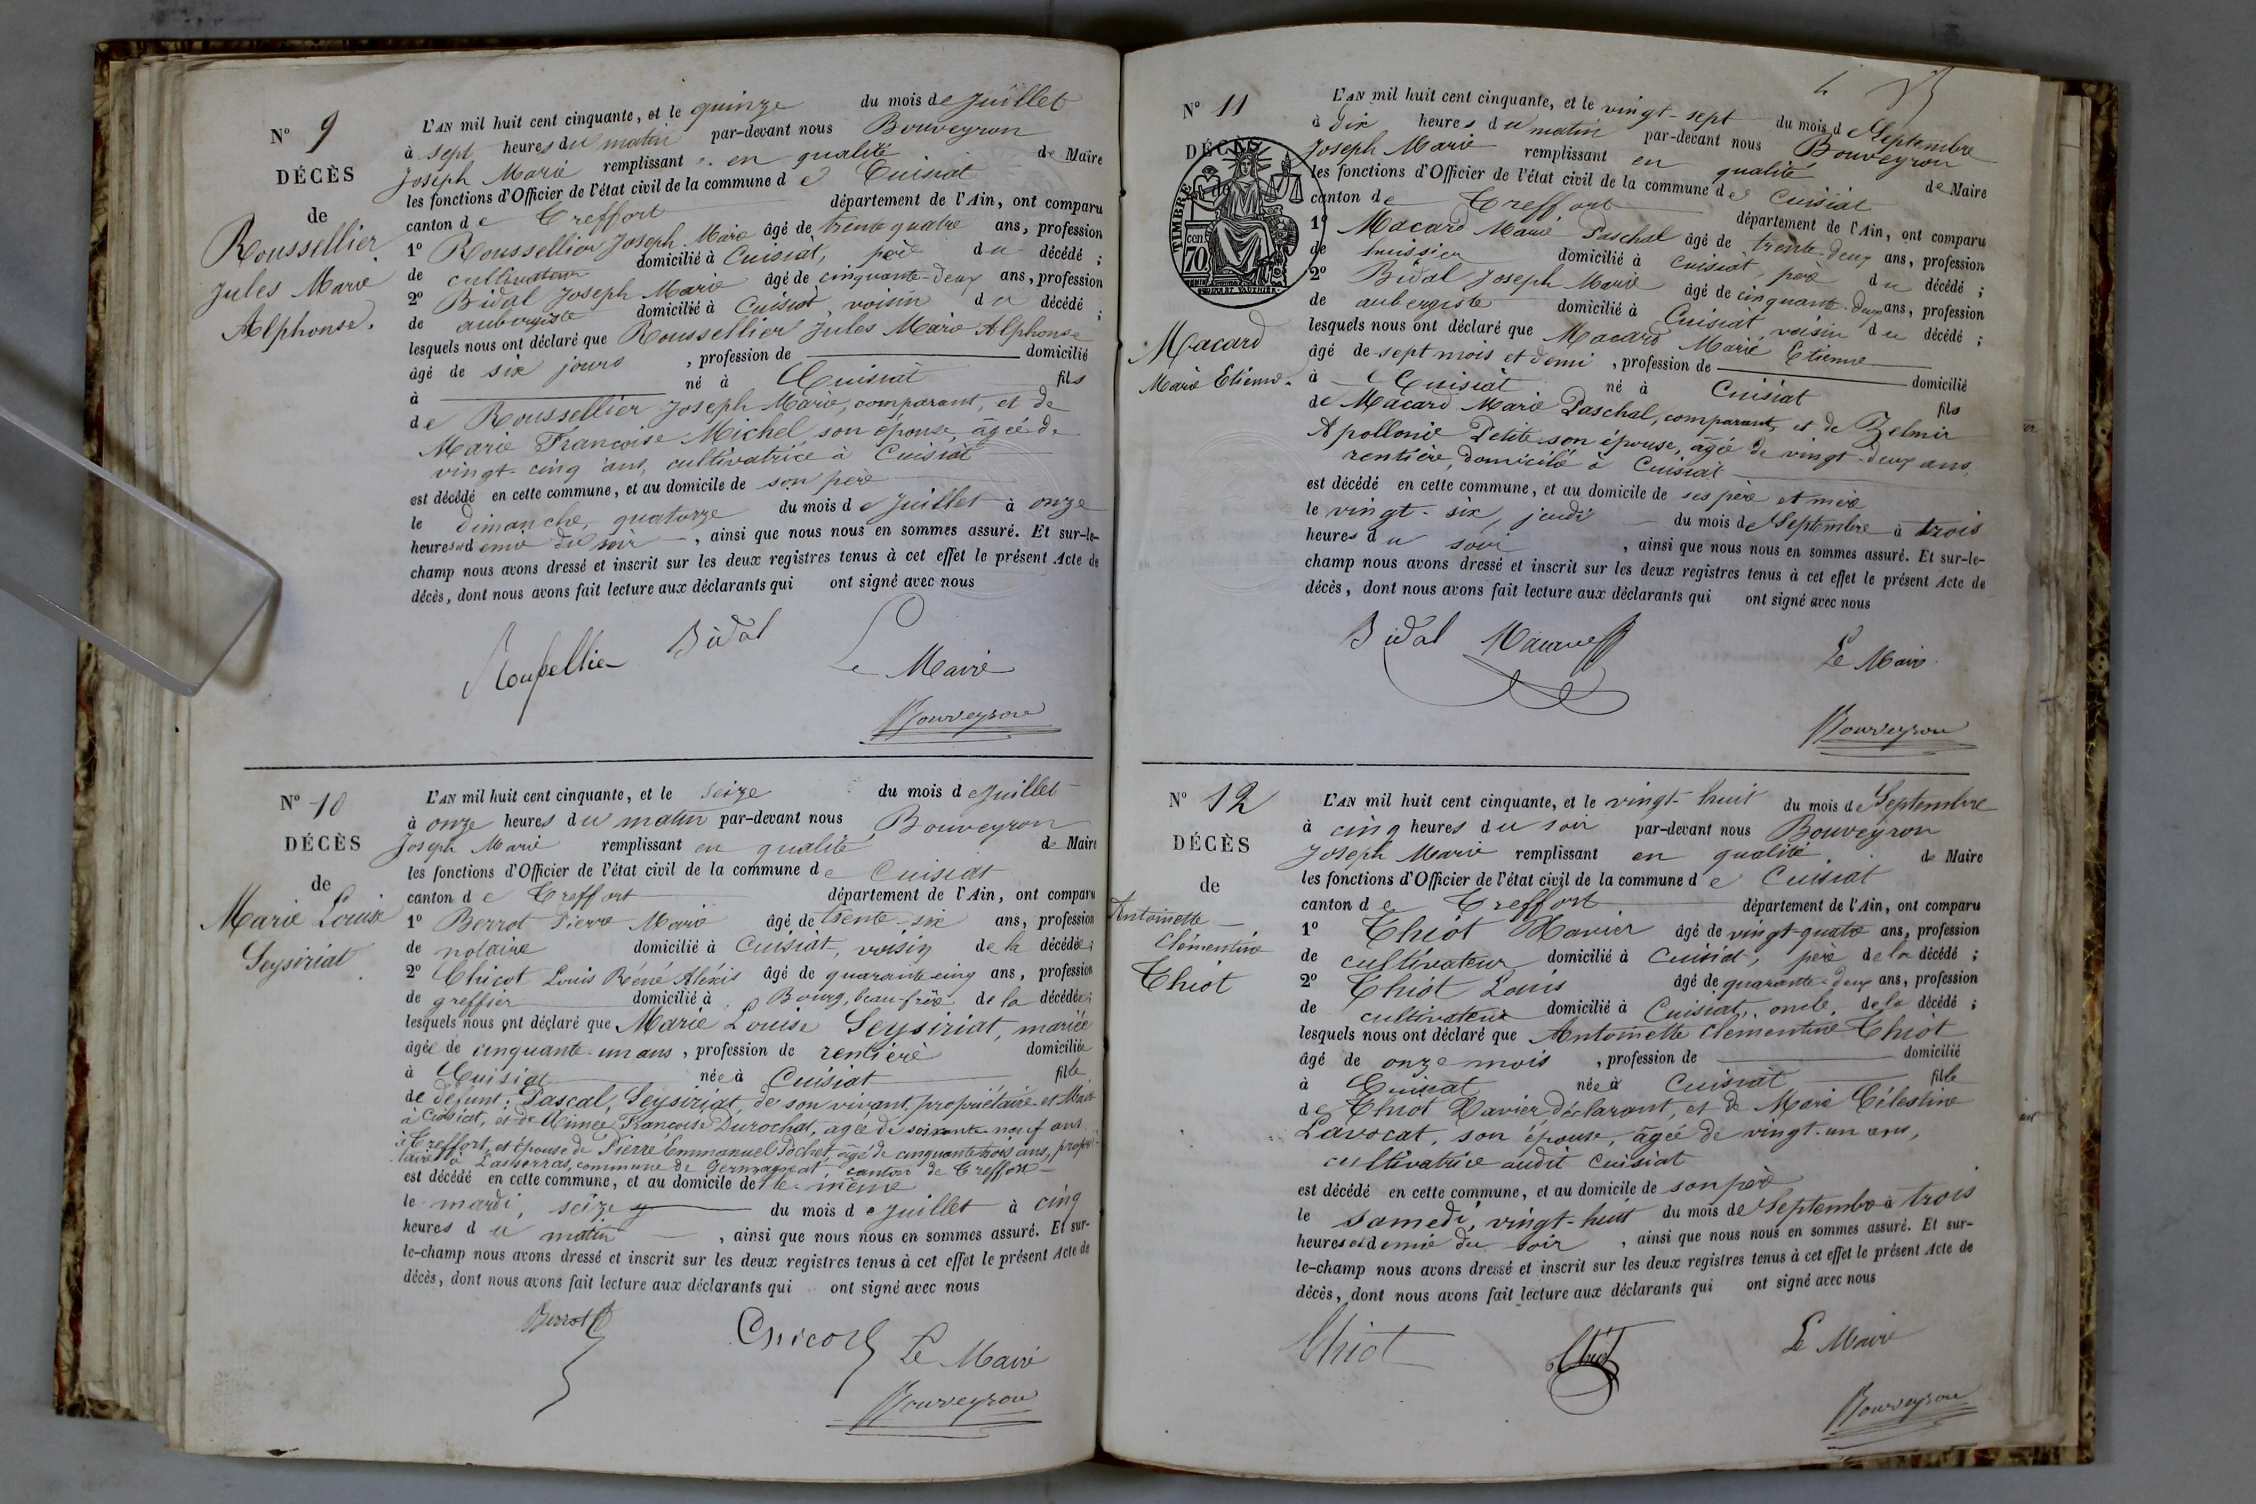 N° 9
DÉCÈS
de
Roussellier
Jules Marie
Alphonse.
L'AN mil huit cent cinquante, et le quinze du mois de Juillet
à sept heures du matin par-devant nous Bouveyron
Joseph Marie remplissant en qualité de Maire
les fonctions d'Officier de l'état civil de la commune de Cuisiat
canton de Treffort département de l'Ain, ont comparu
1° Roussellier Joseph Marie âgé de trente quatre ans, profession
de cultivateur domicilié à Cuisiat, père du décédé ;
2° Bidal Joseph Marie âgé de cinquante-deux ans, profession
de aubergiste domicilié à Cuisiat, voisin du décédé ;
lesquels nous ont déclaré que Roussellier Jules Marie Alphonse
âgé de six jours , profession de domicilié
à né à Cuisiat fils
de Roussellier Joseph Marie, comparant, et de
Marie Françoise Michel son épouse, agée de
vingt-cinq ans, cultivatrice à Cuisiat
est décédé en cette commune, et au domicile de son père
le dimanche, quatorze du mois de Juillet à onze
heures et demie du soir , ainsi que nous nous en sommes assuré. Et sur-le-
champ nous avons dressé et inscrit sur les deux registres tenus à cet effet le présent Acte de
décès, dont nous avons fait lecture aux déclarants qui ont signé avec nous
Roussellier Bidal Le Maire
Bouveyron
N° 10
DÉCÈS
de
Marie Louise
Seysiriat
L'AN mil huit cent cinquante, et le seize du mois de Juillet
à onze heures du matin par-devant nous Bouveyron
Joseph Marie remplissant en qualité de Maire
les fonctions d'Officier de l'état civil de la commune de Cuisiat
canton de Treffort département de l'Ain, ont comparu
1° Berrot Pierre Marie âgé de trente-six ans, profession
de notaire domicilié à Cuisiat, voisin de la décédée;
2° Chicot Louis Réné Alexis âgé de quarante cinq ans, profession
de greffier domicilié à Bourg, beau-frère de la décédée;
lesquels nous ont déclaré que Marie Louise Seysiriat, mariée
âgée de cinquante-un ans, profession de rentière domiciliée
à Cuisiat née à Cuisiat fille
de défunt: Pascal, Seysiriat, de son vivant, propriétaire et Maire
à Cuisiat, et de Aimée Françoise Durochat, agée de soixante-neuf ans
à Treffort, et épouse de Pierre Emmanuel Pochet, âgé de cinquante trois ans, propri-
taire à commune de Germagnat canton de Treffort
est décédé en cette commune, et au domicile de le même
le mardi, seize du mois de Juillet à cinq
heures du matin , ainsi que nous nous en sommes assuré. Et sur-
le-champ nous avons dressé et inscrit sur les deux registres tenus à cet effet le présent Acte de
décès, dont nous avons fait lecture aux déclarants qui ont signé avec nous
Berrot Chicot Le Maire
Bouveyron
N° 11
DÉCÈS
TIMBRE
70 cen
Macard
Marie Etienne.
L'AN mil huit cent cinquante, et le vingt-sept du mois de Septembre
à dix heures du matin par-devant nous Bouveyron
Joseph Marie remplissant en qualité de Maire
les fonctions d'Officier de l'état civil de la commune de Cuisiat
canton de Treffort département de l'Ain, ont comparu
1° Macard Marie Paschal âgé de trente-deux ans, profession
de huissier domicilié à Cuisiat, père du décédé ;
2° Bidal Joseph Marie âgé de cinquante-deux ans, profession
de aubergiste domicilié à Cuisiat voisin du décédé ;
lesquels nous ont déclaré que Macard Marie Etienne
âgé de sept mois et demi , profession de domicilié
à Cuisiat né à Cuisiat fils
de Macard Marie Paschal, comparant, et de Zelmir
Apollonie Petit son épouse, agée de vingt-deux ans,
rentière, domiciliée à Cuisiat
est décédé en cette commune, et au domicile de ses père et mère
le vingt-six, jeudi du mois de Septembre à trois
heures du soir , ainsi que nous nous en sommes assuré. Et sur-le-
champ nous avons dressé et inscrit sur les deux registres tenus à cet effet le présent Acte de
décès, dont nous avons fait lecture aux déclarants qui ont signé avec nous
Bidal Macard Le Maire
Bouveyron
N° 12
DÉCÈS
de
Antoinette
Clémentine
Thiot
L'AN mil huit cent cinquante, et le vingt-huit du mois de Septembre
à cinq heures du soir par-devant nous Bouveyron
Joseph Marie remplissant en qualité de Maire
les fonctions d'Officier de l'état civil de la commune de Cuisiat
canton de Treffort département de l'Ain, ont comparu
1° Thiot Xavier âgé de vingt-quatre ans, profession
de cultivateur domicilié à Cuisiat, père de la décédé ;
2° Thiot Louis âgé de quarante-deux ans, profession
de cultivateur domicilié à Cuisiat, oncle, de la décédé ;
lesquels nous ont déclaré que Antoinette Clementine Thiot
âgé de onze mois , profession de domicilié
à Cuisiat née à Cuisiat fille
de Thiot Xavier, déclarant, et de Marie Célestine
Lavocat, son épouse, âgée de vingt-un ans,
cultivatrice audit Cuisiat
est décédé en cette commune, et au domicile de son père
le samedi, vingt-huit du mois de Septembre à trois
heures et demie du soir , ainsi que nous nous en sommes assuré. Et sur-
le-champ nous avons dressé et inscrit sur les deux registres tenus à cet effet le présent Acte de
décès, dont nous avons fait lecture aux déclarants qui ont signé avec nous
Thiot Thiot Le Maire
Bouveyron